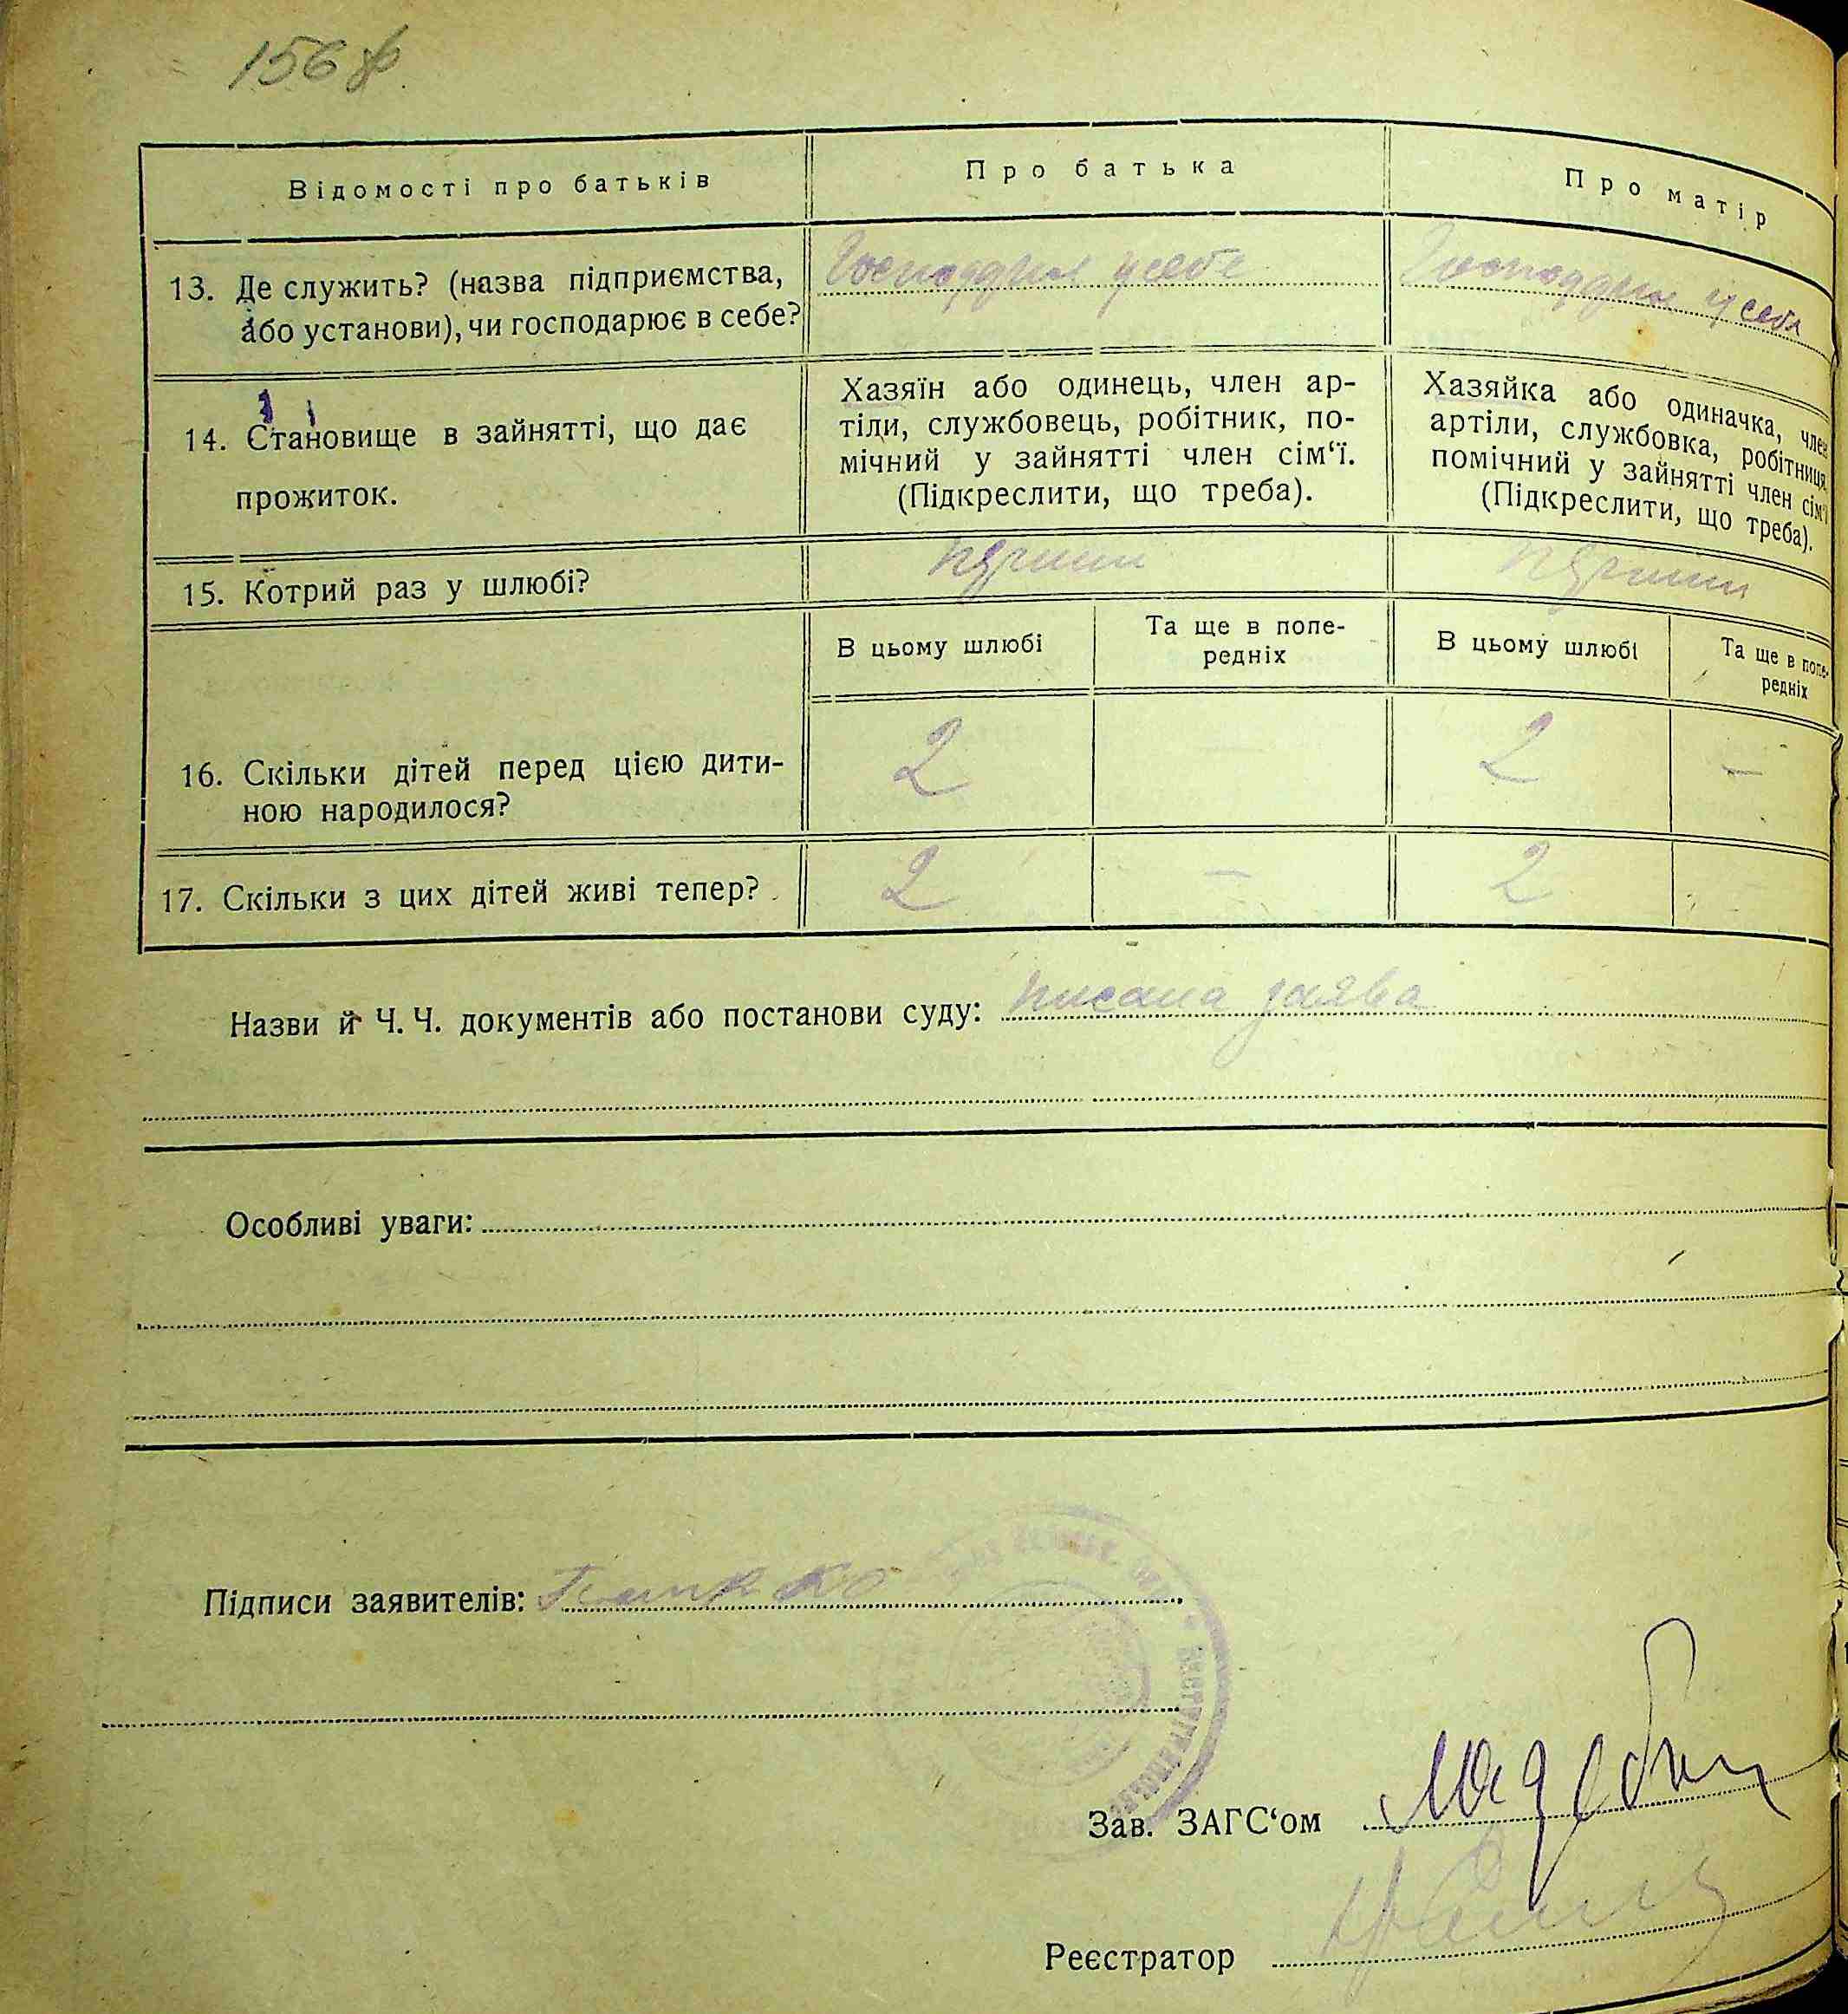 156
Відомості про батьків
Про батька
Про матір
13. Де служить? (назва підприємства,
або установи), чи господарює в себе?
Господарює у себе
Господарює у себе
14. Становище в зайнятті, що дає
прожиток.
Хазяїн або одинець, член ар-
тіли, службовець, робітник, по-
мічний у зайнятті член сім‘ї.
(Підкреслити, що треба).
Хазяйка або одиначка, член
артіли, службовка, робітниця,
помічний у зайнятті член сім‘ї
(Підкреслити, що треба).
15. Котрий раз у шлюбі?
перший
перший
В цьому шлюбі
Та ще в попе-
редніх
В цьому шлюбі
Та ще в попе-
редніх
16. Скільки дітей перед цією дити-
ною народилося?
2
2 —
17. Скільки з цих дітей живі тепер?
2 — 2
Назви й Ч. Ч. документів або постанови суду: писана заява
Особливі уваги:
Підписи заявителів:
Зав. ЗАГС‘ом
Реєстратор